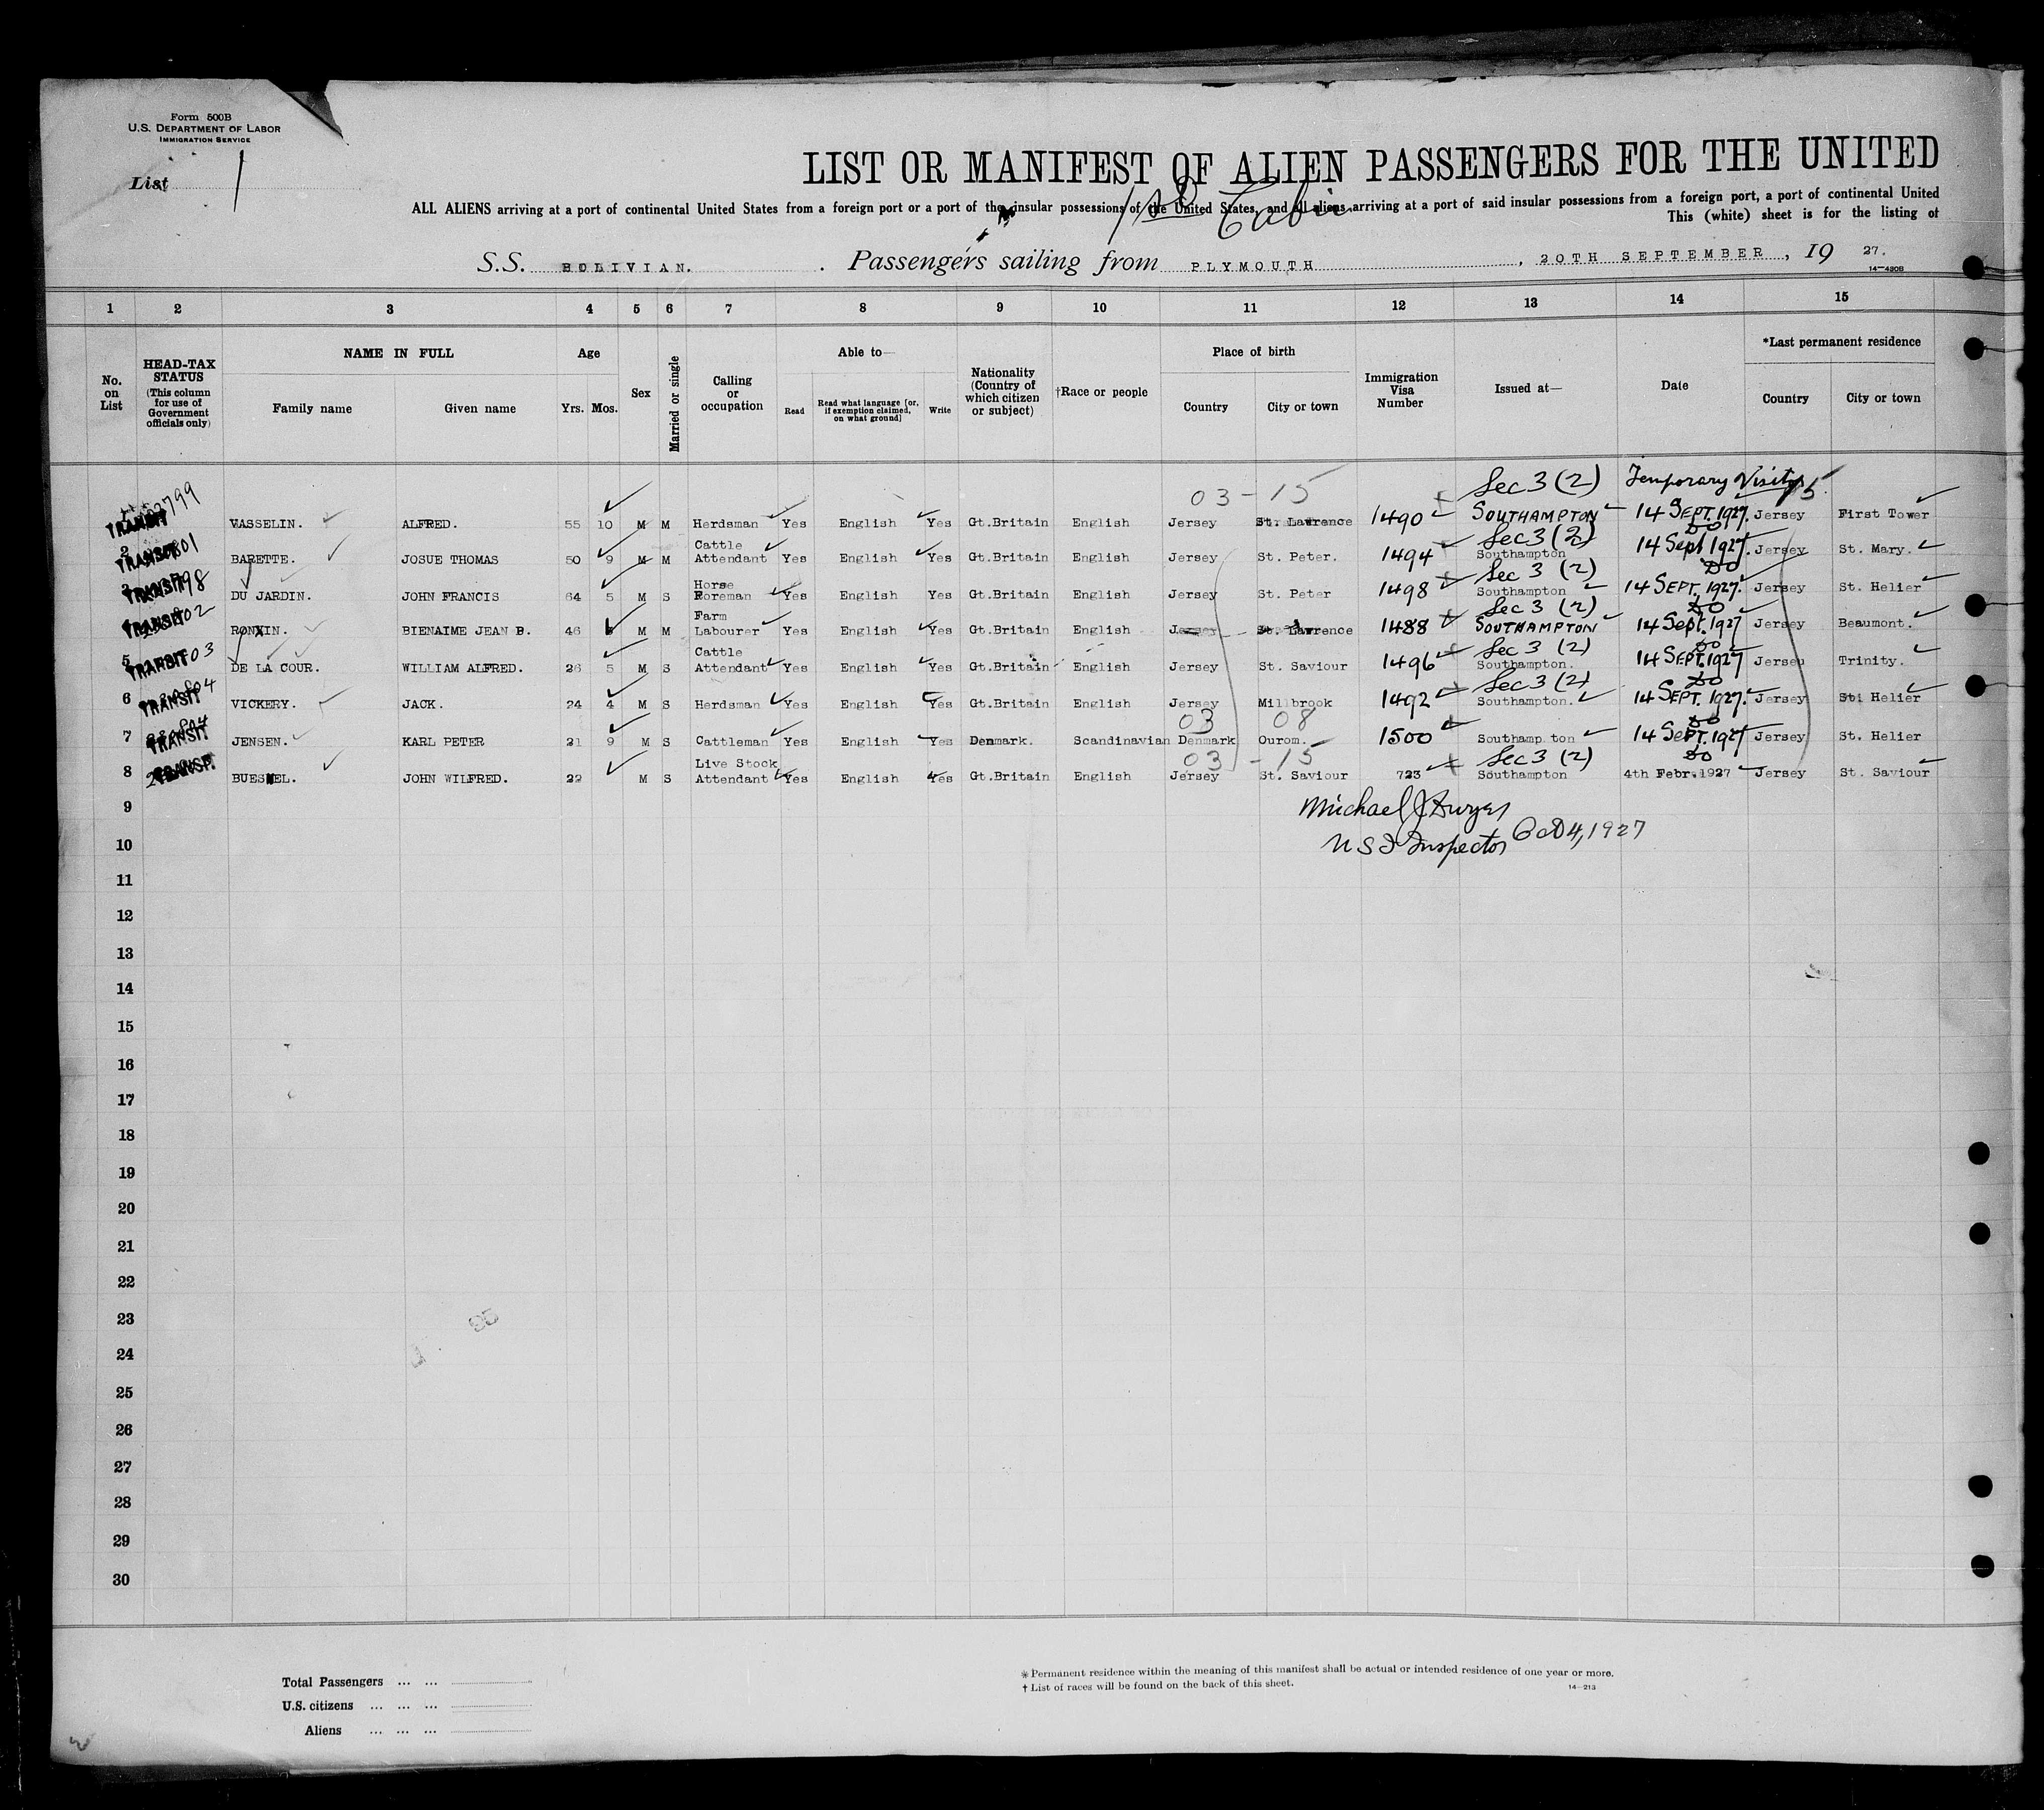 Form 500B
U.S. DEPARTMENT OF LABOR
IMMIGRATION SERVICE
List 1
LIST OR MANIFEST OF ALIEN PASSENGERS FOR THE UNITED
1st Cabin
ALL ALIENS arriving at a port of continental United States from a foreign port or a port of the insular possessions of the United States, and all aliens arriving at a port of said insular possessions from a foreign port, a port of continental United
This (white) sheet is for the listing of
S.S. BOLIVIAN. Passengers sailing from PLYMOUTH, 20TH SEPTEMBER, 19 27.
14—430B
1 2 3 4 5 6 7 8 9 10 11 12 13 14 15
No. on List
HEAD-TAX STATUS (This column for use of Government officials only)
NAME IN FULL
Family name Given name
Age
Yrs. Mos.
Sex
Married or single
Calling or occupation
Able to—
Read
Read what language [or, if exemption claimed, on what ground]
Write
Nationality (Country of which citizen or subject)
†Race or people
Place of birth
Country City or town
Immigration Visa Number
Issued at—
Date
*Last permanent residence
Country City or town
03-15 Sec 3 (2) Temporary Visit 15
TRANSIT VASSELIN. ALFRED. 55 10 M M Herdsman Yes English Yes Gt.Britain English Jersey St. Lawrence 1490 SOUTHAMPTON 14 SEPT. 1927. Jersey First Tower
Sec 3 (2) Do
2 TRANSIT BARETTE. JOSUE THOMAS 50 9 M M Cattle Attendant Yes English Yes Gt.Britain English Jersey St. Peter. 1494 Southampton 14 Sept 1927. Jersey St. Mary.
Sec 3 (2) Do
3 TRANSIT DU JARDIN. JOHN FRANCIS 64 5 M S Horse Foreman Yes English Yes Gt.Britain English Jersey St. Peter 1498 Southampton 14 SEPT. 1927. Jersey St. Helier
Sec 3 (2) Do
4 TRANSIT BIENAIME JEAN B. 46 M M Farm Labourer Yes English Yes Gt.Britain English Jersey St. Lawrence 1488 SOUTHAMPTON 14 Sept. 1927 Jersey Beaumont.
Sec 3 (2) Do
5 TRANSIT DE LA COUR. WILLIAM ALFRED. 26 5 M S Cattle Attendant Yes English Yes Gt.Britain English Jersey St. Saviour 1496 Southampton. 14 SEPT. 1927 Jersey Trinity.
Sec 3 (2) Do
6 TRANSIT VICKERY. JACK. 24 4 M S Herdsman Yes English Yes Gt.Britain English Jersey Millbrook 1492 Southampton. 14 SEPT. 1927. Jersey St. Helier
03 08 Do
7 TRANSIT JENSEN. KARL PETER 21 9 M S Cattleman Yes English Yes Denmark. Scandinavian Denmark Ourom. 1500 Southampton 14 SEPT. 1927 Jersey St. Helier
03-15 Sec 3 (2) Do
8 TRANSP. JOHN WILFRED. 22 M S Live Stock Attendant Yes English Yes Gt.Britain English Jersey St. Saviour 723 Southampton 4th Febr. 1927 Jersey St. Saviour
9
Michael J Dwyer
10
U S I Inspector Oct 4, 1927
11
12
13
14
15
16
17
18
19
20
21
22
23
24
25
26
27
28
29
30
Total Passengers ... ...
U.S. citizens ... ... ...
Aliens ... ... ...
* Permanent residence within the meaning of this manifest shall be actual or intended residence of one year or more.
† List of races will be found on the back of this sheet.
14—213